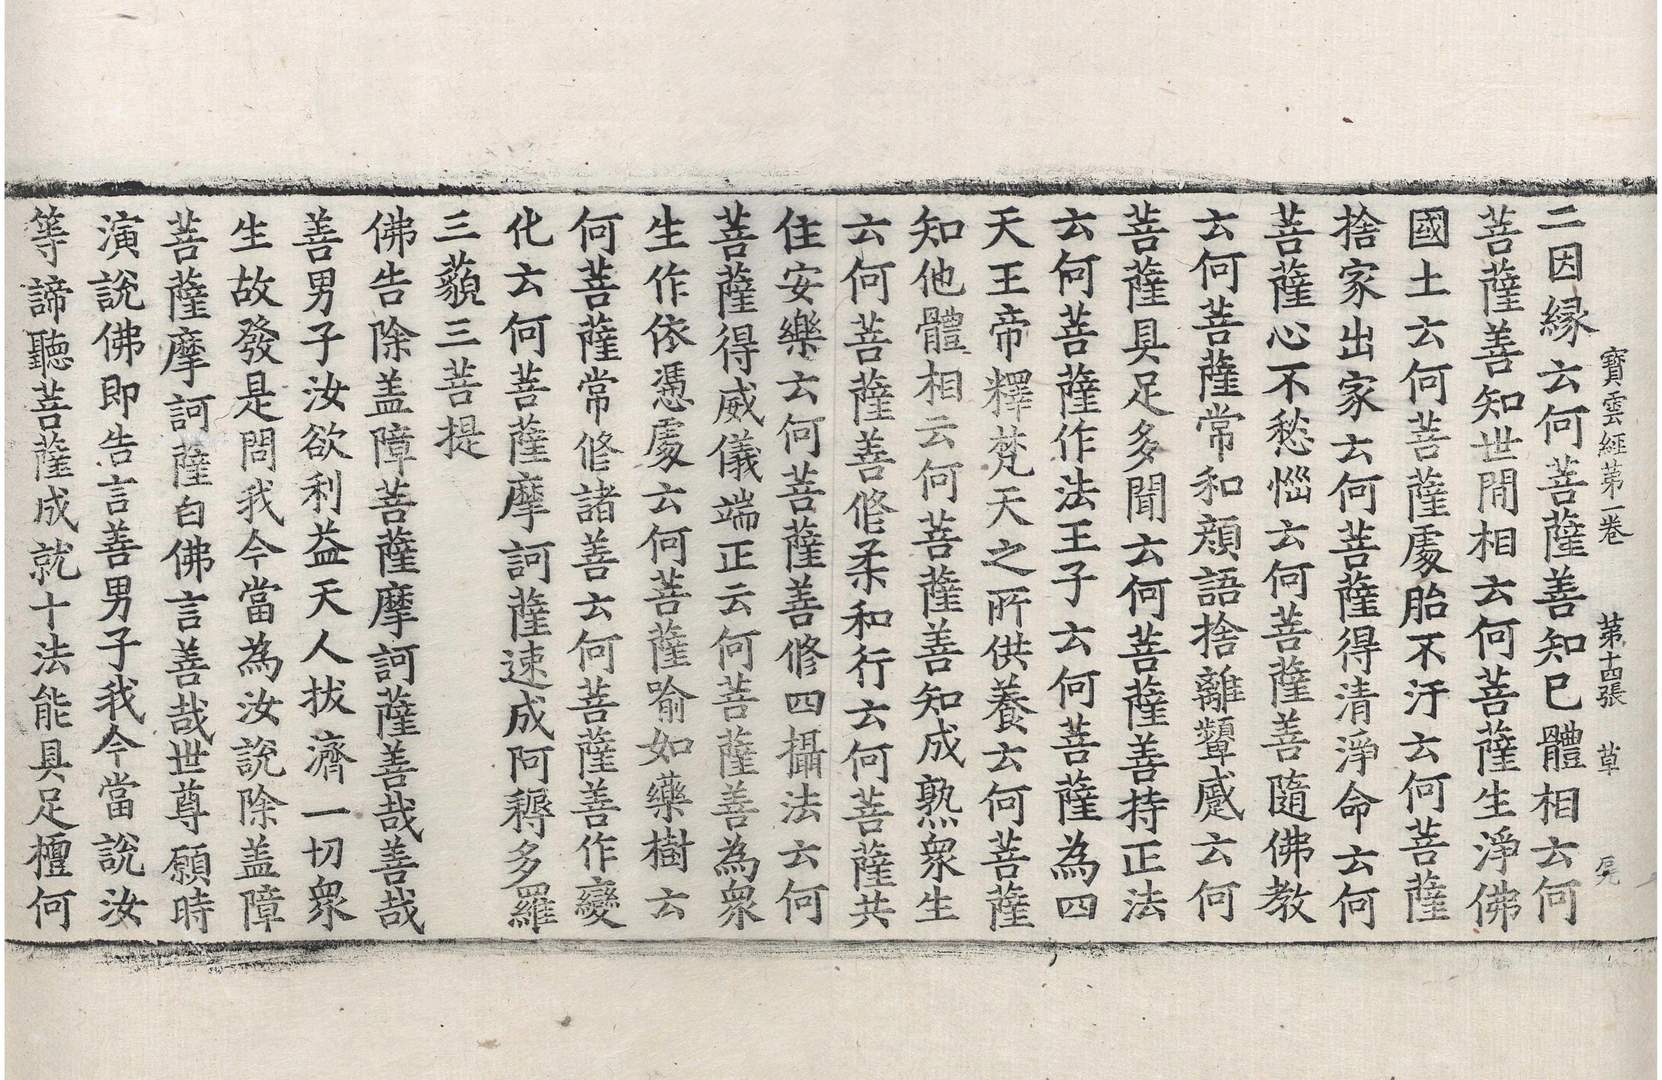 寶雲經第一卷 第十四張 草
二因縁云何菩薩善知已體相云何
菩薩善知世間相云何菩薩生淨佛
國土云何菩薩處胎不汙云何菩薩
捨家出家云何菩薩得清淨命云何
菩薩心不愁惱云何菩薩善隨佛教
云何菩薩常和顔語捨離顰蹙云何
菩薩具足多聞云何菩薩善持正法
云何菩薩作法王子云何菩薩為四
天王帝釋梵天之所供養云何菩薩
知他體相云何菩薩善知成熟衆生
云何菩薩善修柔和行云何菩薩共
住安樂云何菩薩善修四攝法云何
菩薩得威儀端正云何菩薩善為衆
生作依憑處云何菩薩喻如藥樹云
何菩薩常修諸善云何菩薩善作變
化云何菩薩摩訶薩速成阿耨多羅
三藐三菩提
佛告除盖障菩薩摩訶薩善哉善哉
善男子汝欲利益天人拔濟一切衆
生故發是問我今當為汝說除盖障
菩薩摩訶薩白佛言善哉世尊願時
演說佛即告言善男子我今當說汝
等諦聽菩薩成就十法能具足檀何